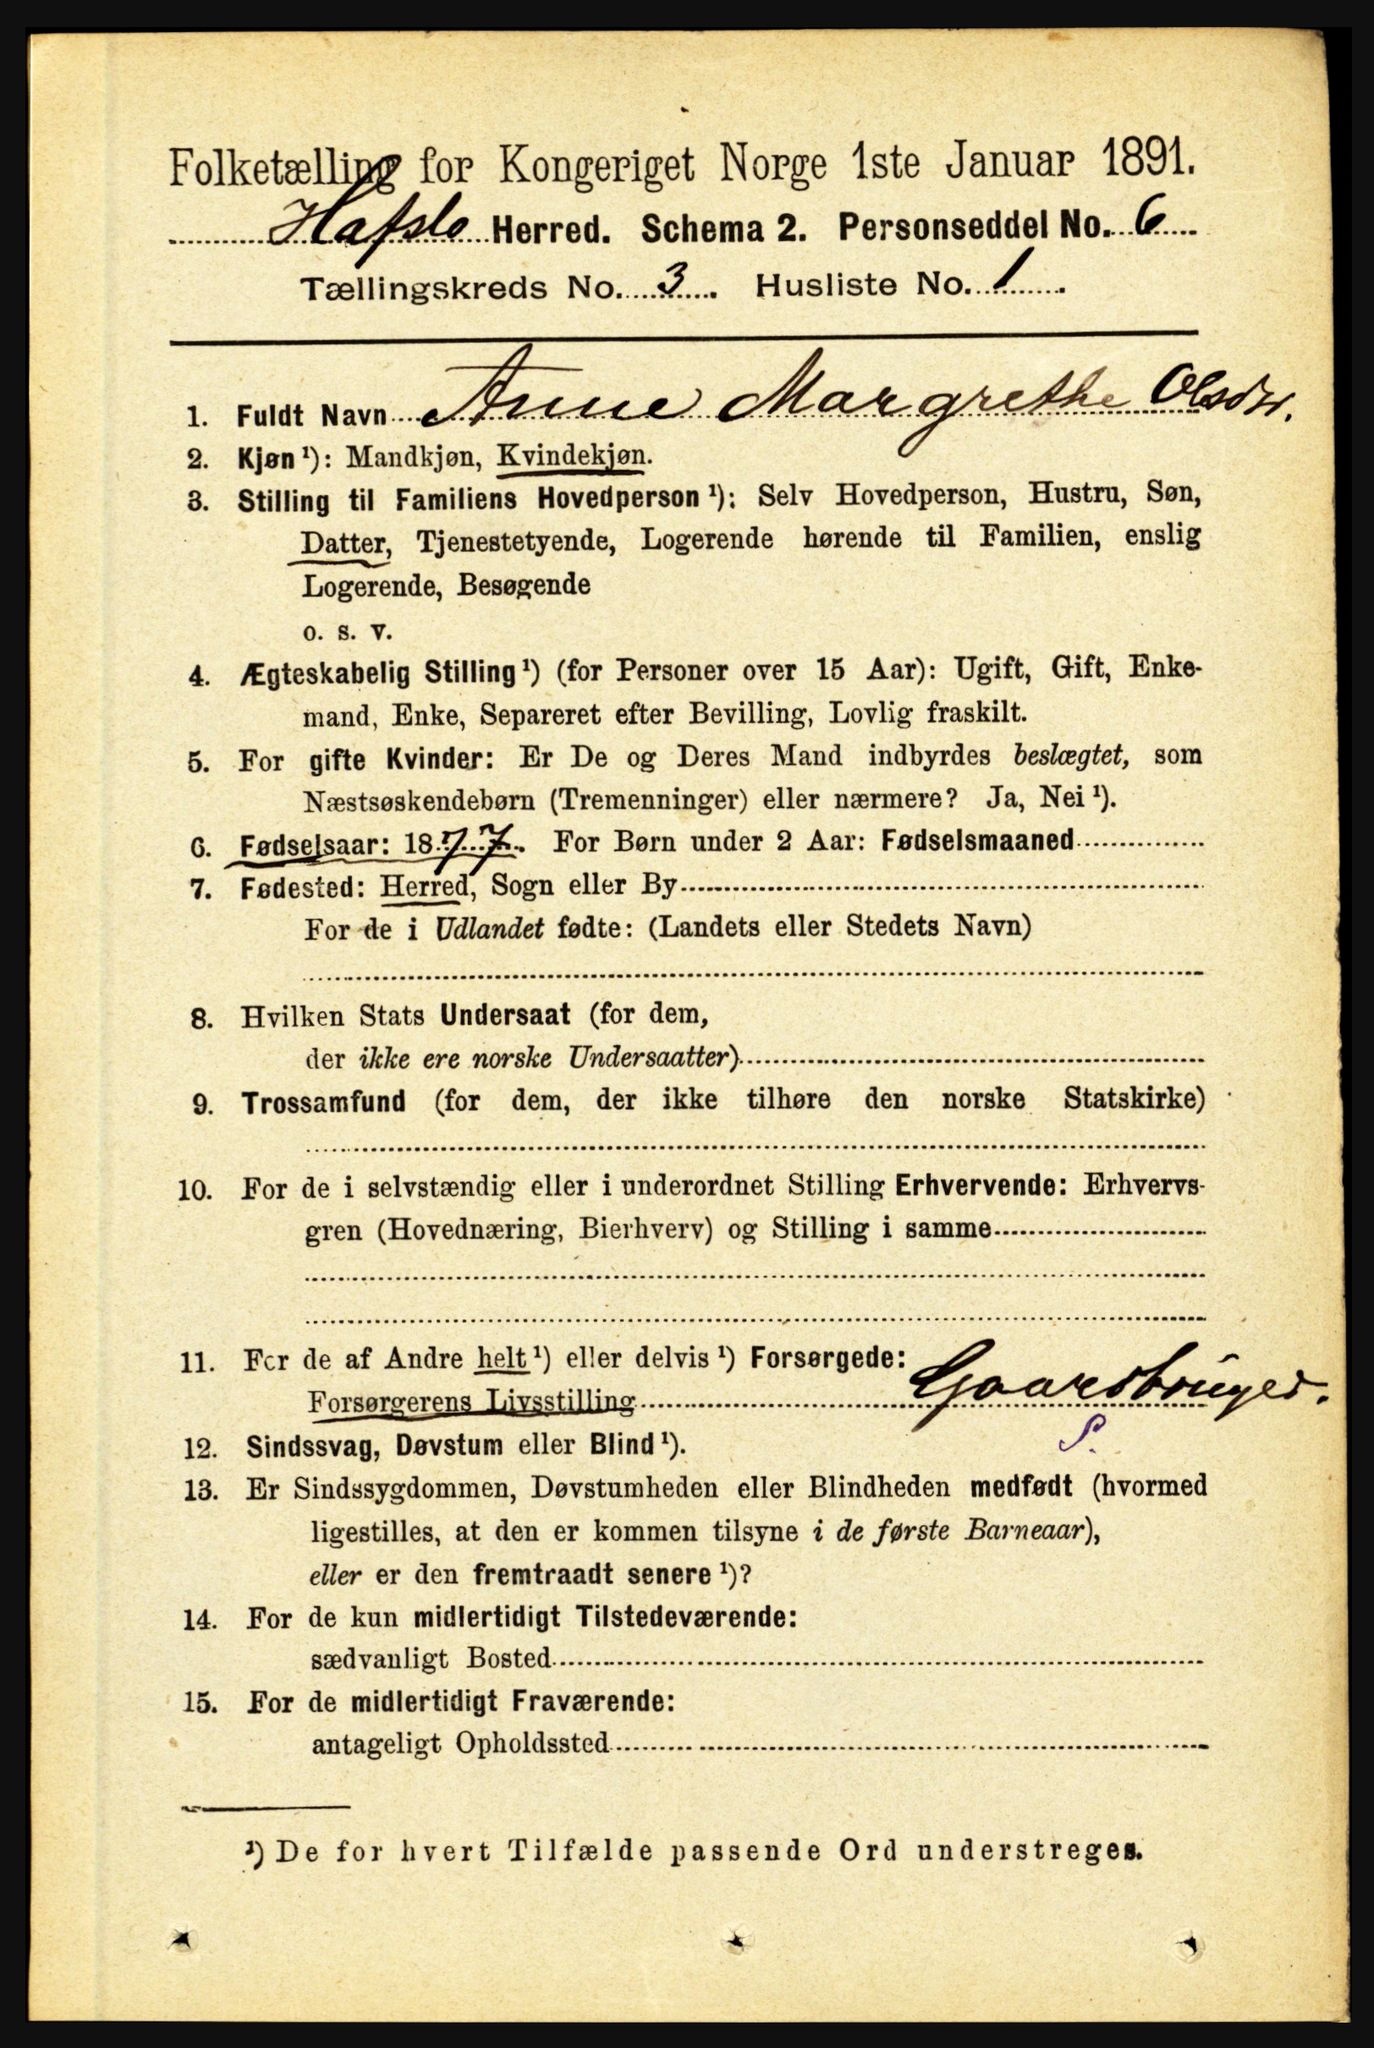 Folketælling for Kongeriget Norge 1ste Januar 1891.
Hafslo Herred. Schema 2. Personseddel No. 6
Tællingskreds No. 3. Husliste No. 1.
1. Fuldt Navn Anne Margrethe Olsdtr.
2. Kjøn ¹): Mandkjøn, Kvindekjøn.
3. Stilling til Familiens Hovedperson ¹): Selv Hovedperson, Hustru, Søn,
Datter, Tjenestetyende, Logerende hørende til Familien, enslig
Logerende, Besøgende
o. s. v.
4. Ægteskabelig Stilling ¹) (for Personer over 15 Aar): Ugift, Gift, Enke-
mand, Enke, Separeret efter Bevilling, Lovlig fraskilt.
5. For gifte Kvinder: Er De og Deres Mand indbyrdes beslægtet, som
Næstsøskendebørn (Tremenninger) eller nærmere? Ja, Nei ¹).
6. Fødselsaar: 1877. For Børn under 2 Aar: Fødselsmaaned
7. Fødested: Herred, Sogn eller By
For de i Udlandet fødte: (Landets eller Stedets Navn)
8. Hvilken Stats Undersaat (for dem,
der ikke ere norske Undersaatter)
9. Trossamfund (for dem, der ikke tilhøre den norske Statskirke)
10. For de i selvstændig eller i underordnet Stilling Erhvervende: Erhvervs-
gren (Hovednæring, Bierhverv) og Stilling i samme
11. For de af Andre helt ¹) eller delvis ¹) Forsørgede:
Forsørgerens Livsstilling Gaardbruger.
12. Sindssvag, Døvstum eller Blind ¹). S.
13. Er Sindssygdommen, Døvstumheden eller Blindheden medfødt (hvormed
ligestilles, at den er kommen tilsyne i de første Barneaar),
eller er den fremtraadt senere ¹)?
14. For de kun midlertidigt Tilstedeværende:
sædvanligt Bosted
15. For de midlertidigt Fraværende:
antageligt Opholdssted
¹) De for hvert Tilfælde passende Ord understreges.